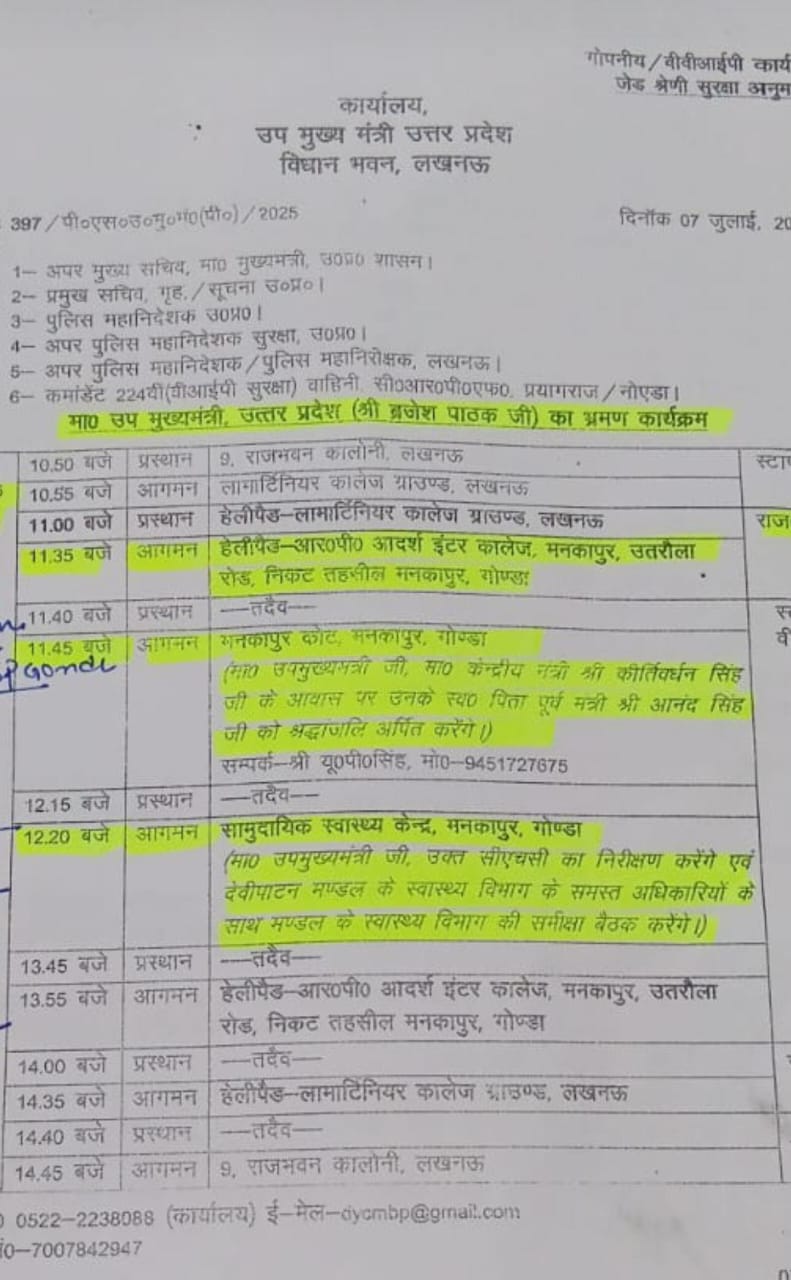 गोपनीय/वीवीआईपी
जेड श्रेणी सुरक्षा
कार्यालय,
उप मुख्य मंत्री उत्तर प्रदेश
विधान भवन, लखनऊ
397/पी०एस०उ०मु०मं०(पी०)/2025
दिनाँक 07 जुलाई,
1– अपर मुख्य सचिव, मा0 मुख्यमंत्री, उ0प्र0 शासन।
2– प्रमुख सचिव, गृह,/सूचना उ०प्र०।
3– पुलिस महानिदेशक उ0प्र0।
4– अपर पुलिस महानिदेशक सुरक्षा, उ0प्र0।
5– अपर पुलिस महानिदेशक/पुलिस महानिरीक्षक, लखनऊ।
6– कमांडेंट 224वी(वीआईपी सुरक्षा) वाहिनी, सी0आर0पी0एफ0, प्रयागराज/नोएडा।
मा0 उप मुख्यमंत्री, उत्तर प्रदेश (श्री ब्रजेश पाठक जी) का भ्रमण कार्यक्रम
10.50 बजे प्रस्थान 9, राजभवन कालोनी, लखनऊ
10.55 बजे आगमन लामार्टिनियर कालेज ग्राउण्ड, लखनऊ
11.00 बजे प्रस्थान हेलीपैड–लामार्टिनियर कालेज ग्राउण्ड, लखनऊ
11.35 बजे आगमन हेलीपैड–आर0पी0 आदर्श इंटर कालेज, मनकापुर, उतरौला
रोड, निकट तहसील मनकापुर, गोण्डा
11.40 बजे प्रस्थान —तदैव—
11.45 बजे आगमन मनकापुर कोट, मनकापुर, गोण्डा
(मा0 उपमुख्यमंत्री जी, मा0 केन्द्रीय मंत्री श्री कीर्तिवर्धन सिंह
जी के आवास पर उनके स्व0 पिता पूर्व मंत्री श्री आनंद सिंह
जी को श्रद्धांजलि अर्पित करेंगे।)
सम्पर्क–श्री यू0पी0सिंह, मो0–9451727675
12.15 बजे प्रस्थान —तदैव—
12.20 बजे आगमन सामुदायिक स्वास्थ्य केन्द्र, मनकापुर, गोण्डा
(मा0 उपमुख्यमंत्री जी, उक्त सीएचसी का निरीक्षण करेंगे एवं
देवीपाटन मण्डल के स्वास्थ्य विभाग के समस्त अधिकारियों के
साथ मण्डल के स्वास्थ्य विभाग की समीक्षा बैठक करेंगे।)
13.45 बजे प्रस्थान —तदैव—
13.55 बजे आगमन हेलीपैड–आर0पी0 आदर्श इंटर कालेज, मनकापुर, उतरौला
रोड, निकट तहसील मनकापुर, गोण्डा
14.00 बजे प्रस्थान —तदैव—
14.35 बजे आगमन हेलीपैड–लामार्टिनियर कालेज ग्राउण्ड, लखनऊ
14.40 बजे प्रस्थान —तदैव—
14.45 बजे आगमन 9, राजभवन कालोनी, लखनऊ
0522–2238088 (कार्यालय) ई–मेल–dycmbp@gmail.com
–7007842947